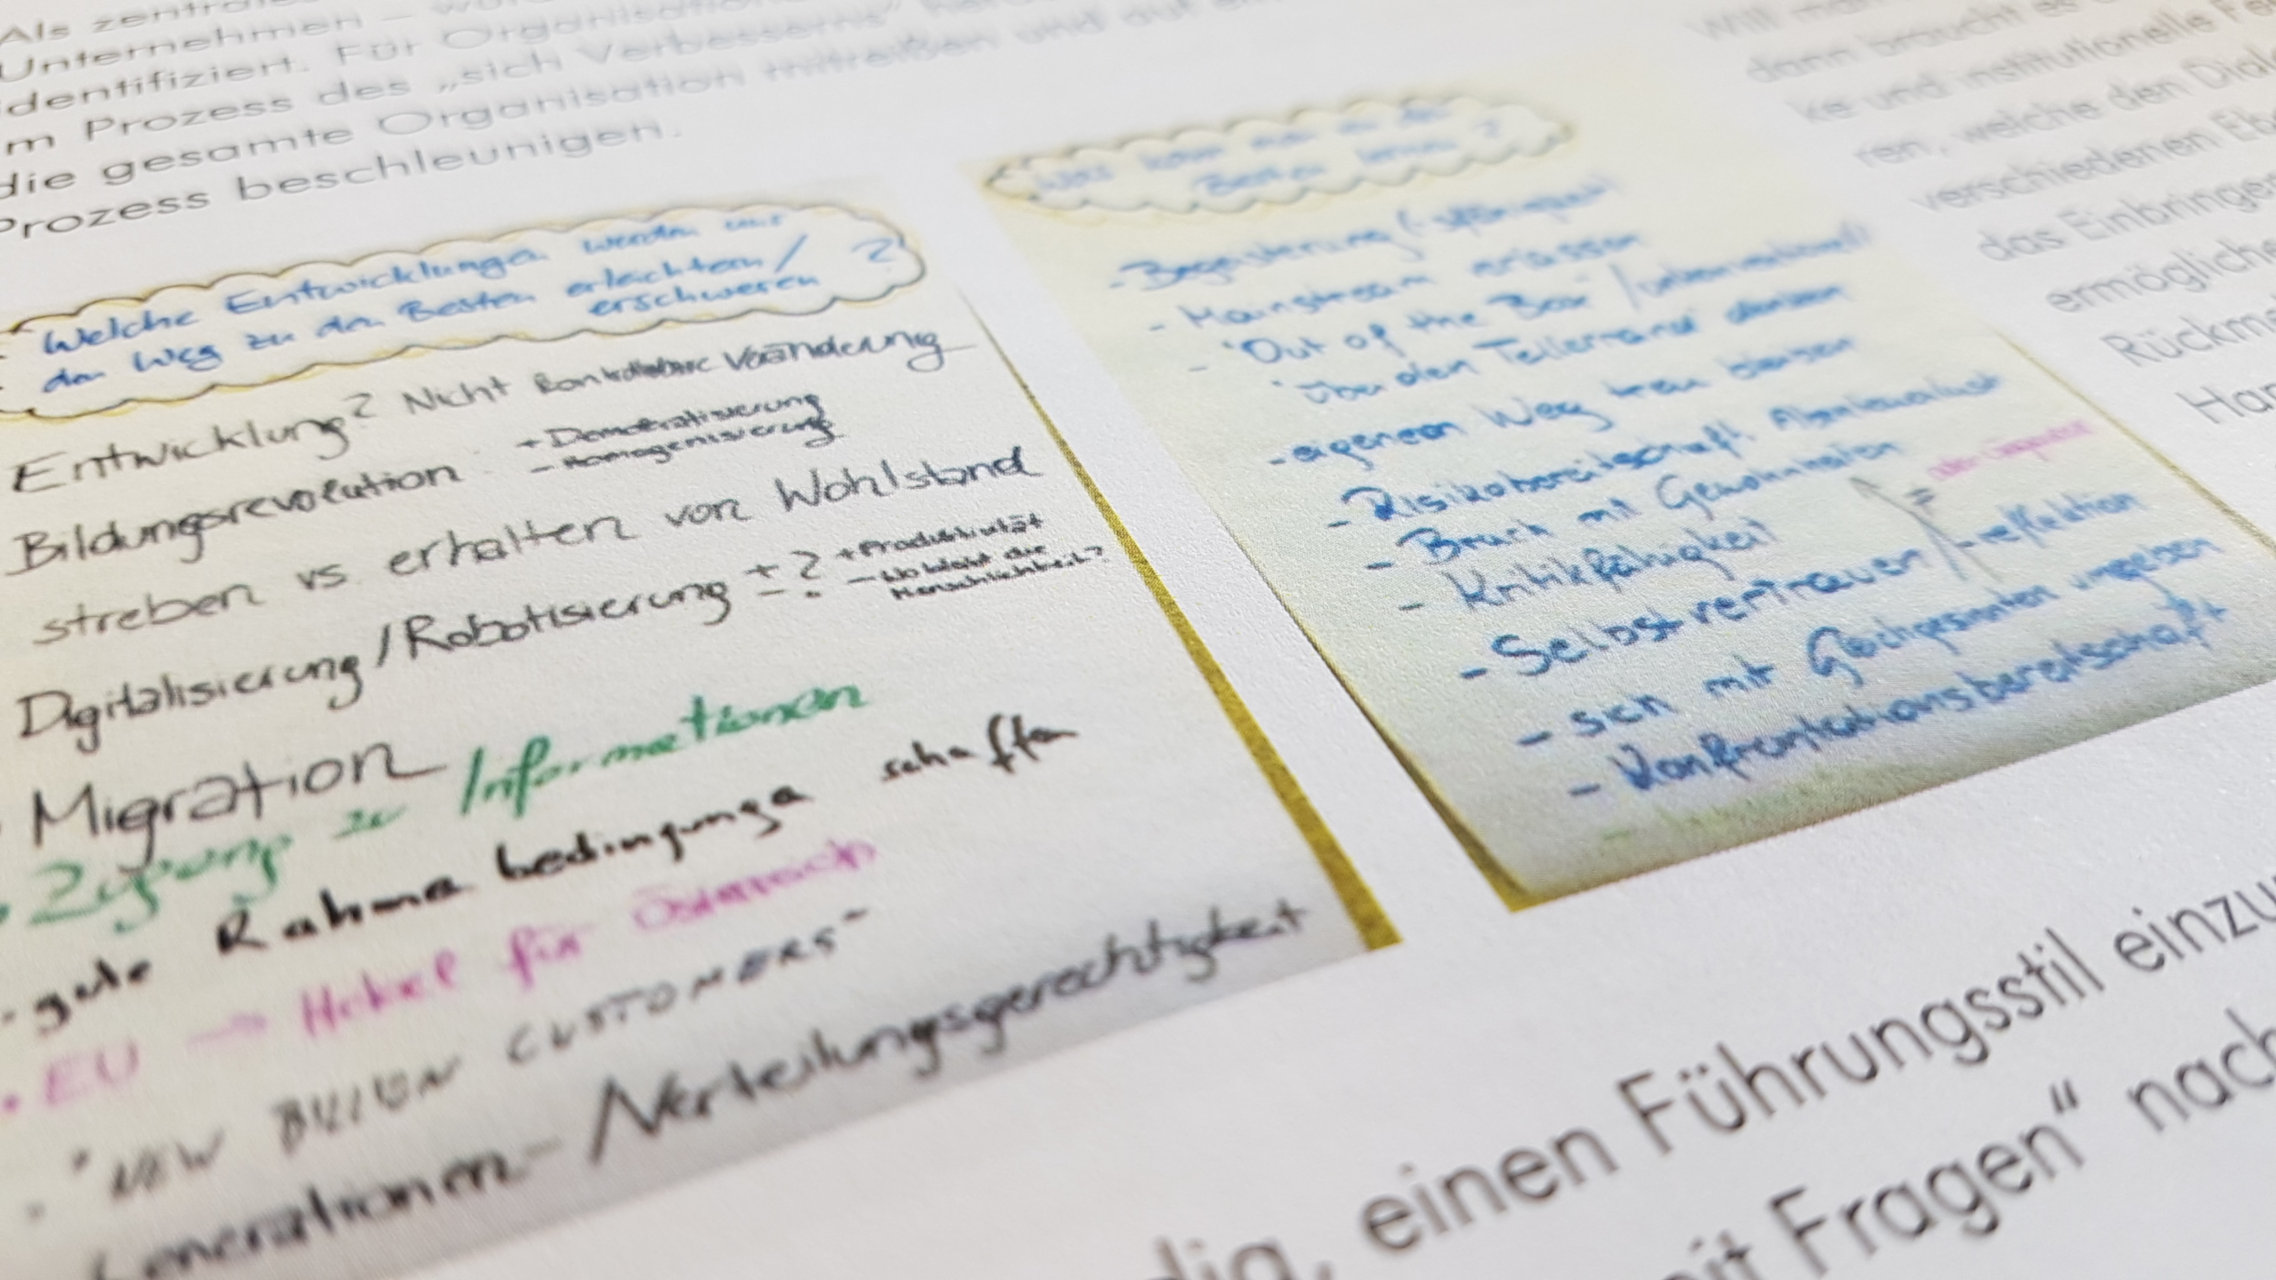 Als zentrale
Unternehmen –
identifiziert. Für Organisationen
m Prozess des „sich Verbesserns“
die gesamte Organisation mitreißen und auf
Prozess beschleunigen.
Welche Entwicklungen werden uns
den Weg zu den Besten erleichtern/
erschweren ?
Entwicklung? Nicht kontrollierbare Veränderung
Bildungsrevolution + Demokratisierung
- Homogenisierung
streben vs erhalten von Wohlstand
Digitalisierung/Robotisierung ± ? + Produktivität
- Wo bleibt die
Menschlichkeit?
Migration
Zugang zu Informationen
- gute Rahmenbedingungen schaffen
• EU → Hebel für Österreich
• "NEW BILLION CUSTOMERS"
Generationen- Verteilungsgerechtigkeit
Besten ?
- Begeisterung
- Mainstream
- "Out of the Box" / international
über den Tellerrand denken
- eigenen Weg
- Risikobereitschaft, Abenteuerlust
- Bruch mit Gewohnheiten
- Kritikfähigkeit
- Selbstvertrauen / -reflektion
- sich mit Gleichgesinnten umgeben
- Konfrontationsbereitschaft
Will man
dann braucht es
ke und institutionelle
ren, welche den
verschiedenen
das Einbringen
ermögliche
Rückme
Han
dig, einen Führungsstil einzu
it Fragen“ nach